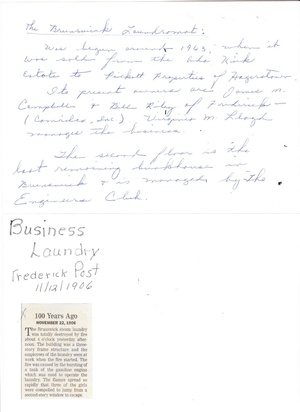 The Brunswick Laundromat:
Was begun around 1963, when it
was sold from the Ada Kink
Estate to Pickett Properties of Hagerstown.
Its present owners are James M.
Campbell & Bill Riley of Frederick -
(Comidec, Inc.) Virginia M. Lloyd
manages the business.
The second floor is the
last remaining bunkhouse in
Brunswick & is managed by The
Engineers Club.
Business
Laundry
Frederick Post
11/12/1906
100 Years Ago
NOVEMBER 12, 1906
The Brunswick steam laundry
was totally destroyed by fire
about 4 o'clock yesterday after-
noon. The building was a three-
story frame structure and the
employees of the laundry were at
work when the fire started. The
fire was caused by the bursting of
a tank of the gasoline engine
which was used to operate the
laundry. The flames spread so
rapidly that three of the girls
were compelled to jump from a
second-story window to escape.